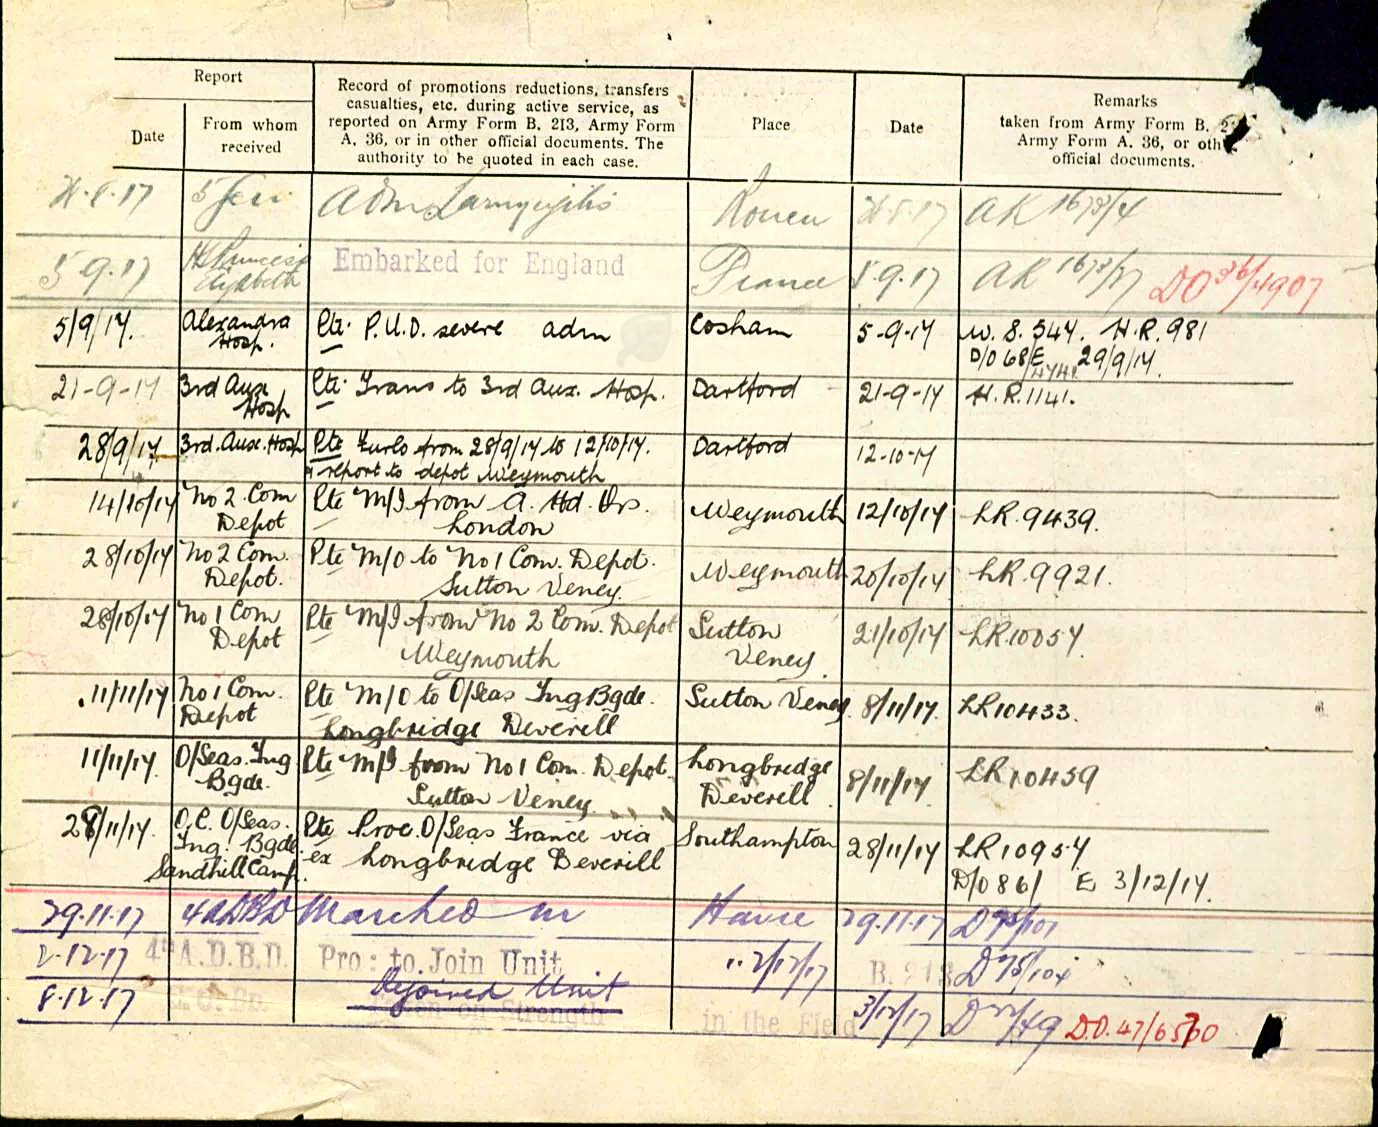 Report
Date
From whom
received
Record of promotions reductions, transfers
casualties, etc. during active service, as
reported on Army Form B. 213, Army Form
A. 36, or in other official documents. The
authority to be quoted in each case.
Place
Date
Remarks
taken from Army Form B.
Army Form A. 36, or oth
official documents.
5 Gen
Adm Laryngitis Rouen
AR 1673/4
5-9-17 HS Princess
Elizabeth
Embarked for England France 5-9-17 AR 1673/ DO 36/4907
5/9/17. Alexandra
Hosp. Pte. P.U.O. severe adm Cosham 5-9-17 W.S. 547. H.R. 981
D/O 68/E 29/9/17.
21-9-17 3rd Aux
Hosp Pte. Trans to 3rd Aux. Hosp. Dartford 21-9-17 H.R. 1141.
28/9/17 3rd. Aux. Hosp Pte Furlo from 28/9/17 to 12/10/17.
& report to depot Weymouth Dartford 12-10-17
14/10/17 No 2 Com
Depot Pte M/I from A. Hd. Qrs.
London Weymouth 12/10/17 LR. 9439.
28/10/17 No 2 Com.
Depot. Pte M/O to No 1 Com. Depot.
Sutton Veney. Weymouth 20/10/17 LR. 9921.
28/10/17 No 1 Com
Depot Pte M/I from No 2 Com. Depot
Weymouth Sutton
Veney. 21/10/17 LR 10057.
11/11/17 No 1 Com.
Depot Pte M/O to O/Seas Tng Bgde.
Longbridge Deverill Sutton Veney. 8/11/17. LR 10433.
11/11/17. O/Seas. Tng
Bgde. Pte M/I from No 1 Com. Depot.
Sutton Veney. Longbridge
Deverill. 8/11/17. LR 10459
28/11/17. O.C. O/Seas.
Tng. Bgde.
Sandhill Camp. Pte Proc. O/Seas France via
ex Longbridge Deverill Southampton 28/11/17 LR 10957
D/O 86/ E 3/12/17.
29.11.17 4 ADBD Marched in Havre 29.11.17 D
2-12-17 4th A.D.B.D. Pro: to Join Unit 2/12/17 B. 213 D 95/104
8-12-17 Rejoined Unit
Taken on Strength in the Field 3/12/17 D D.O. 47/6530